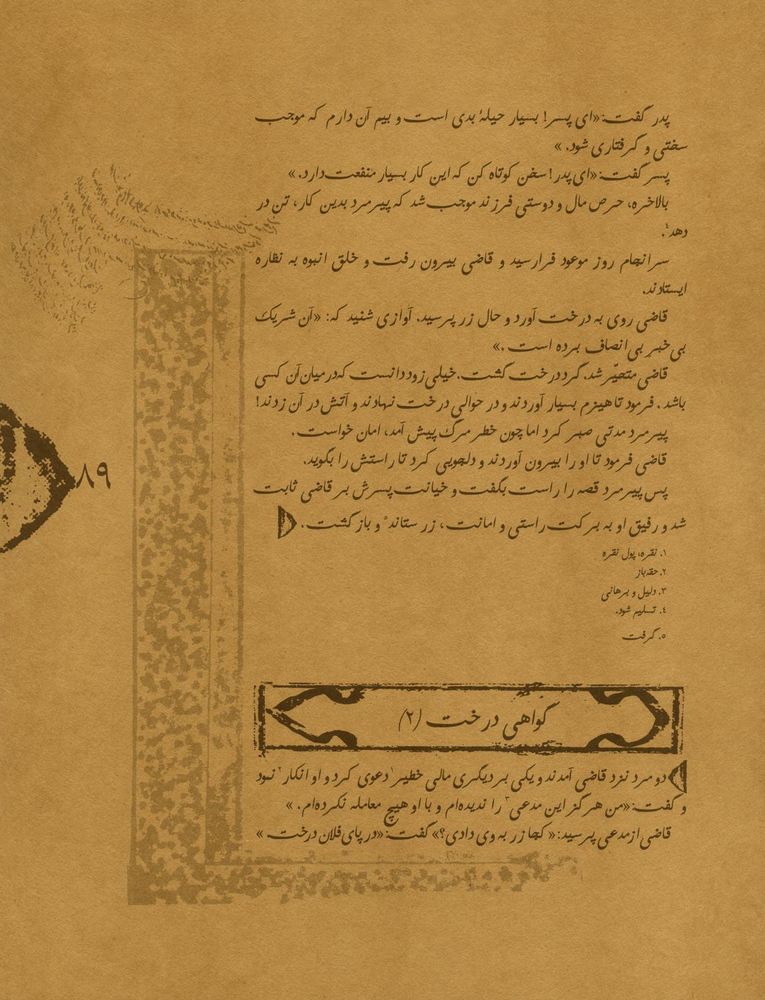 پدر گفت: «ای پسر! بسیار حیلهٔ بدی است و بیم آن دارم که موجب
سختی و گرفتاری شود.»
پسر گفت: «ای پدر! سخن کوتاه کن که این کار بسیار منفعت دارد.»
بالاخره، حرص مال و دوستی فرزند موجب شد که پیرمرد بدین کار، تن در
دهد۴.
سرانجام روز موعود فرارسید و قاضی بیرون رفت و خلق انبوه به نظاره
ایستادند.
قاضی روی به درخت آورد و حال زر پرسید. آوازی شنید که: «آن شریک
بی خبر بی انصاف برده است.»
قاضی متحیّر شد. گرد درخت گشت. خیلی زود دانست که در میان آن کسی
باشد. فرمود تا هیزم بسیار آوردند و در حوالی درخت نهادند و آتش در آن زدند!
پیرمرد مدتی صبر کرد اما چون خطر مرگ پیش آمد، امان خواست.
قاضی فرمود تا او را بیرون آوردند و دلجویی کرد تا راستش را بگوید.
پس پیرمرد قصه را راست بگفت و خیانت پسرش بر قاضی ثابت
شد و رفیق او به برکت راستی و امانت، زر ستاند۵ و بازگشت.
۱. نقره، پول نقره
۲. حقه‌باز
۳. دلیل و برهانی
۴. تسلیم شود.
۵. گرفت
گواهی درخت (۲)
دو مرد نزد قاضی آمدند و یکی بر دیگری مالی خطیر۱ دعوی کرد و او انکار۲ نمود
و گفت: «من هرگز این مدعی۳ را ندیده‌ام و با او هیچ معامله نکرده‌ام.»
قاضی از مدعی پرسید: «کجا زر به وی دادی؟» گفت: «در پای فلان درخت»
۸۹